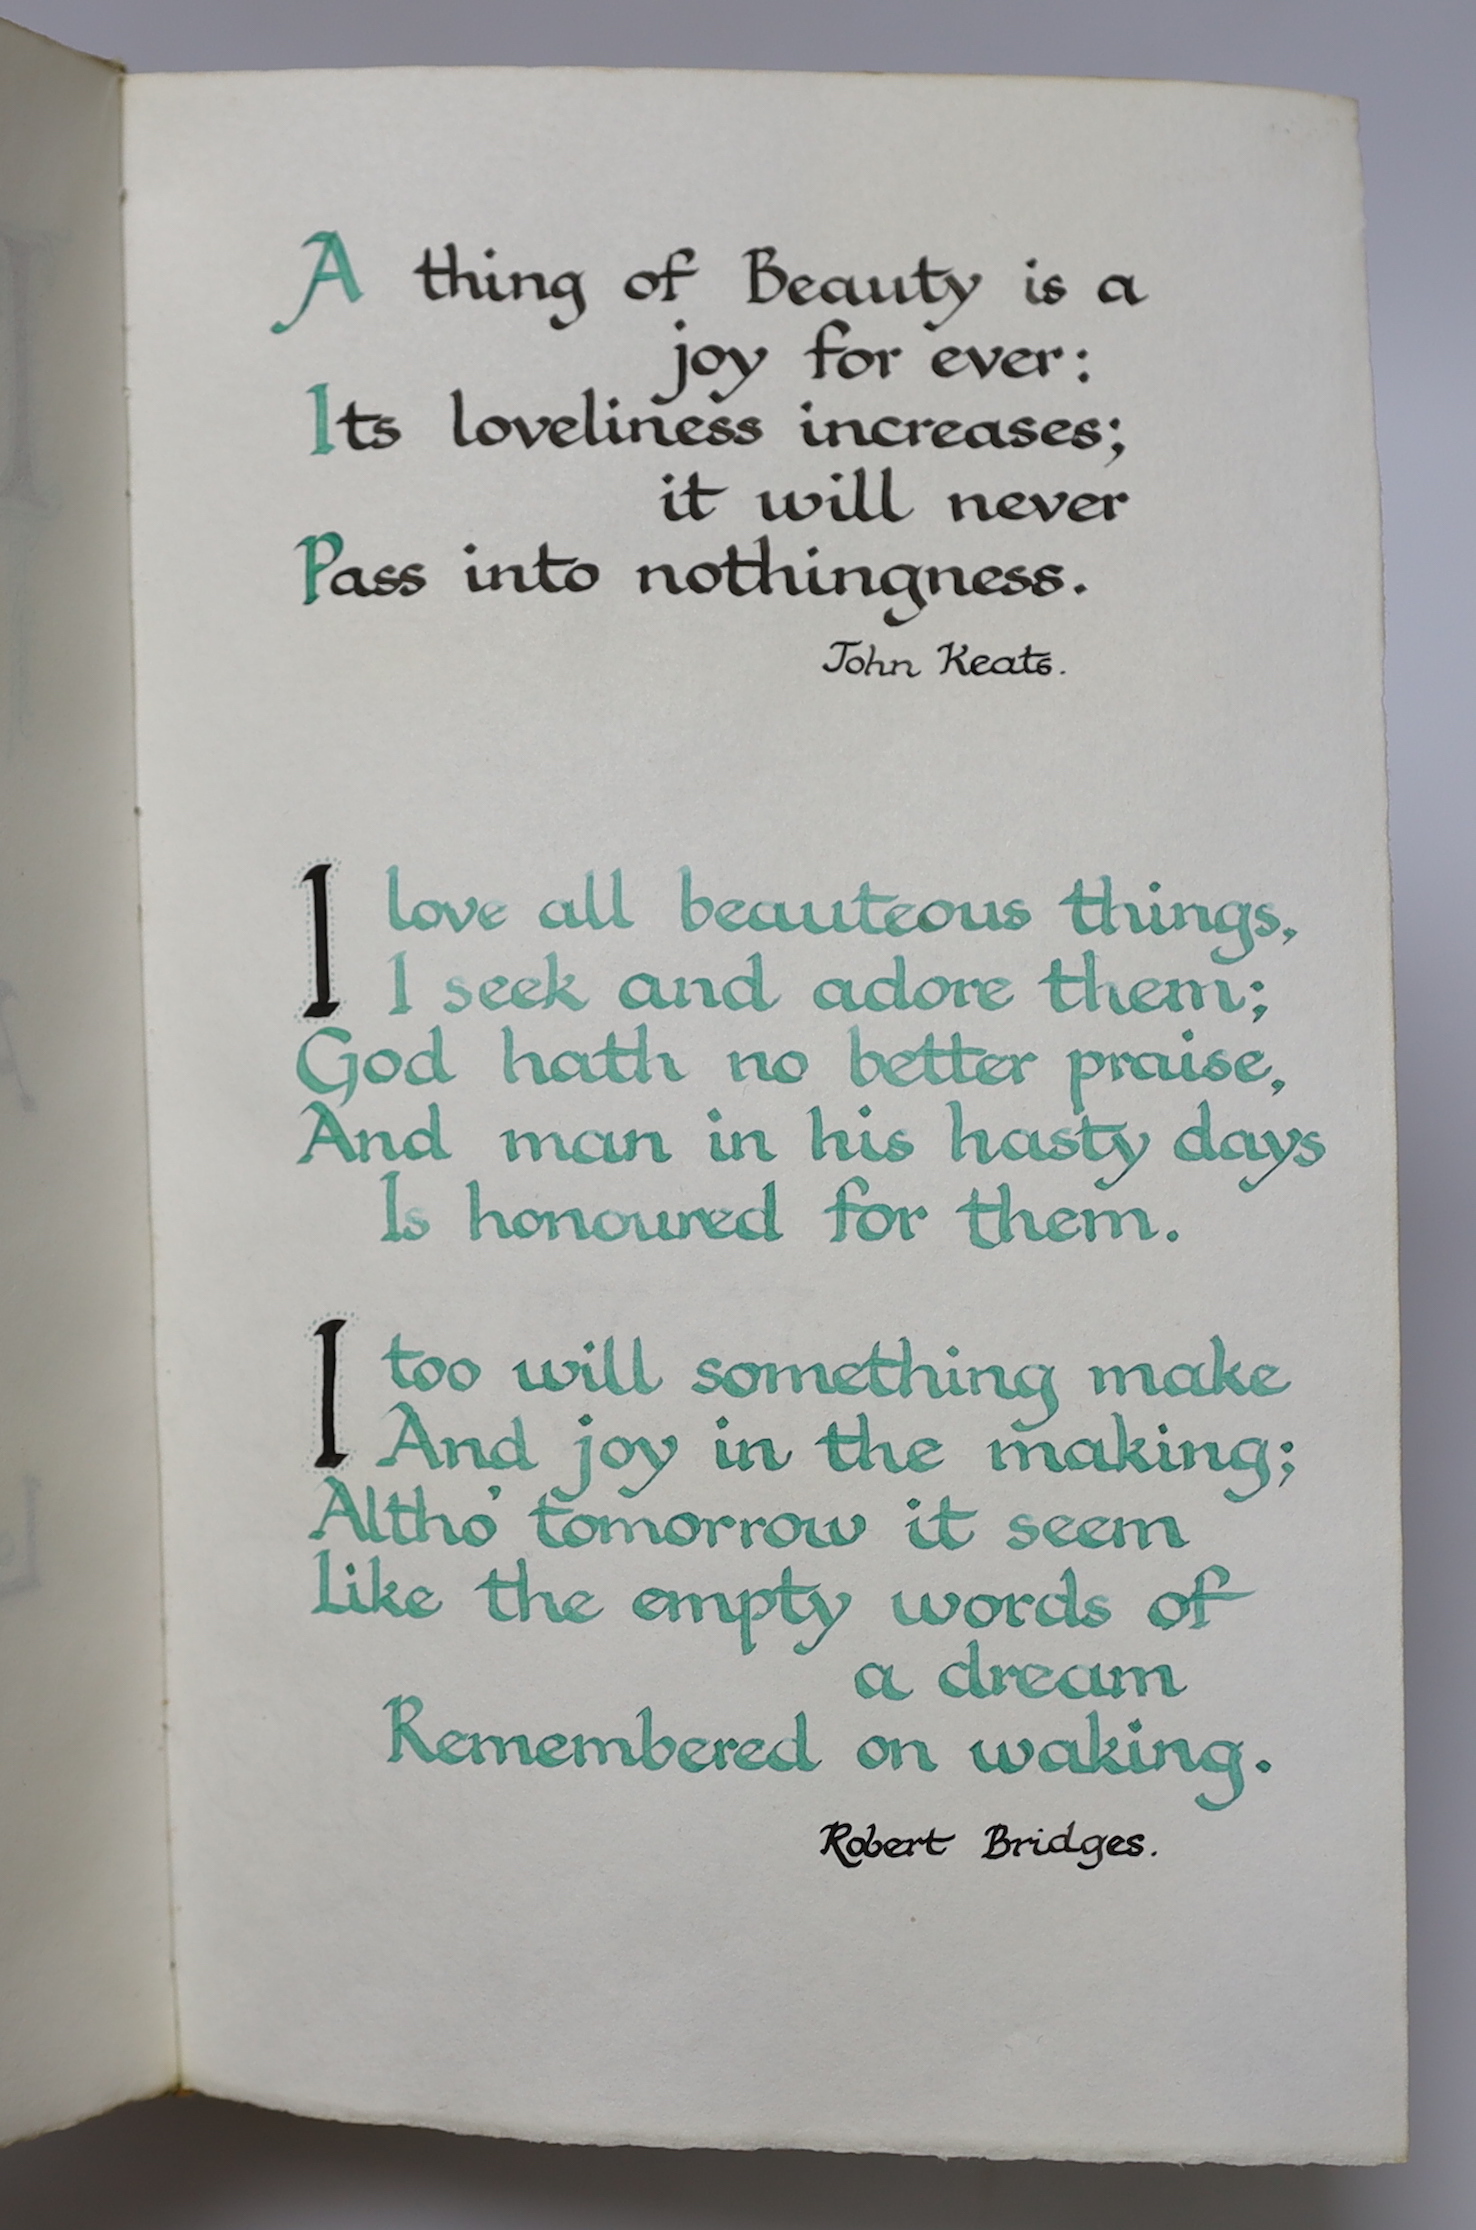 A thing of Beauty is a
joy for ever:
Its loveliness increases;
it will never
Pass into nothingness.
John Keats.
I love all beauteous things,
I seek and adore them;
God hath no better praise,
And man in his hasty days
Is honoured for them.
I too will something make
And joy in the making;
Altho' tomorrow it seem
Like the empty words of
a dream
Remembered on waking.
Robert Bridges.